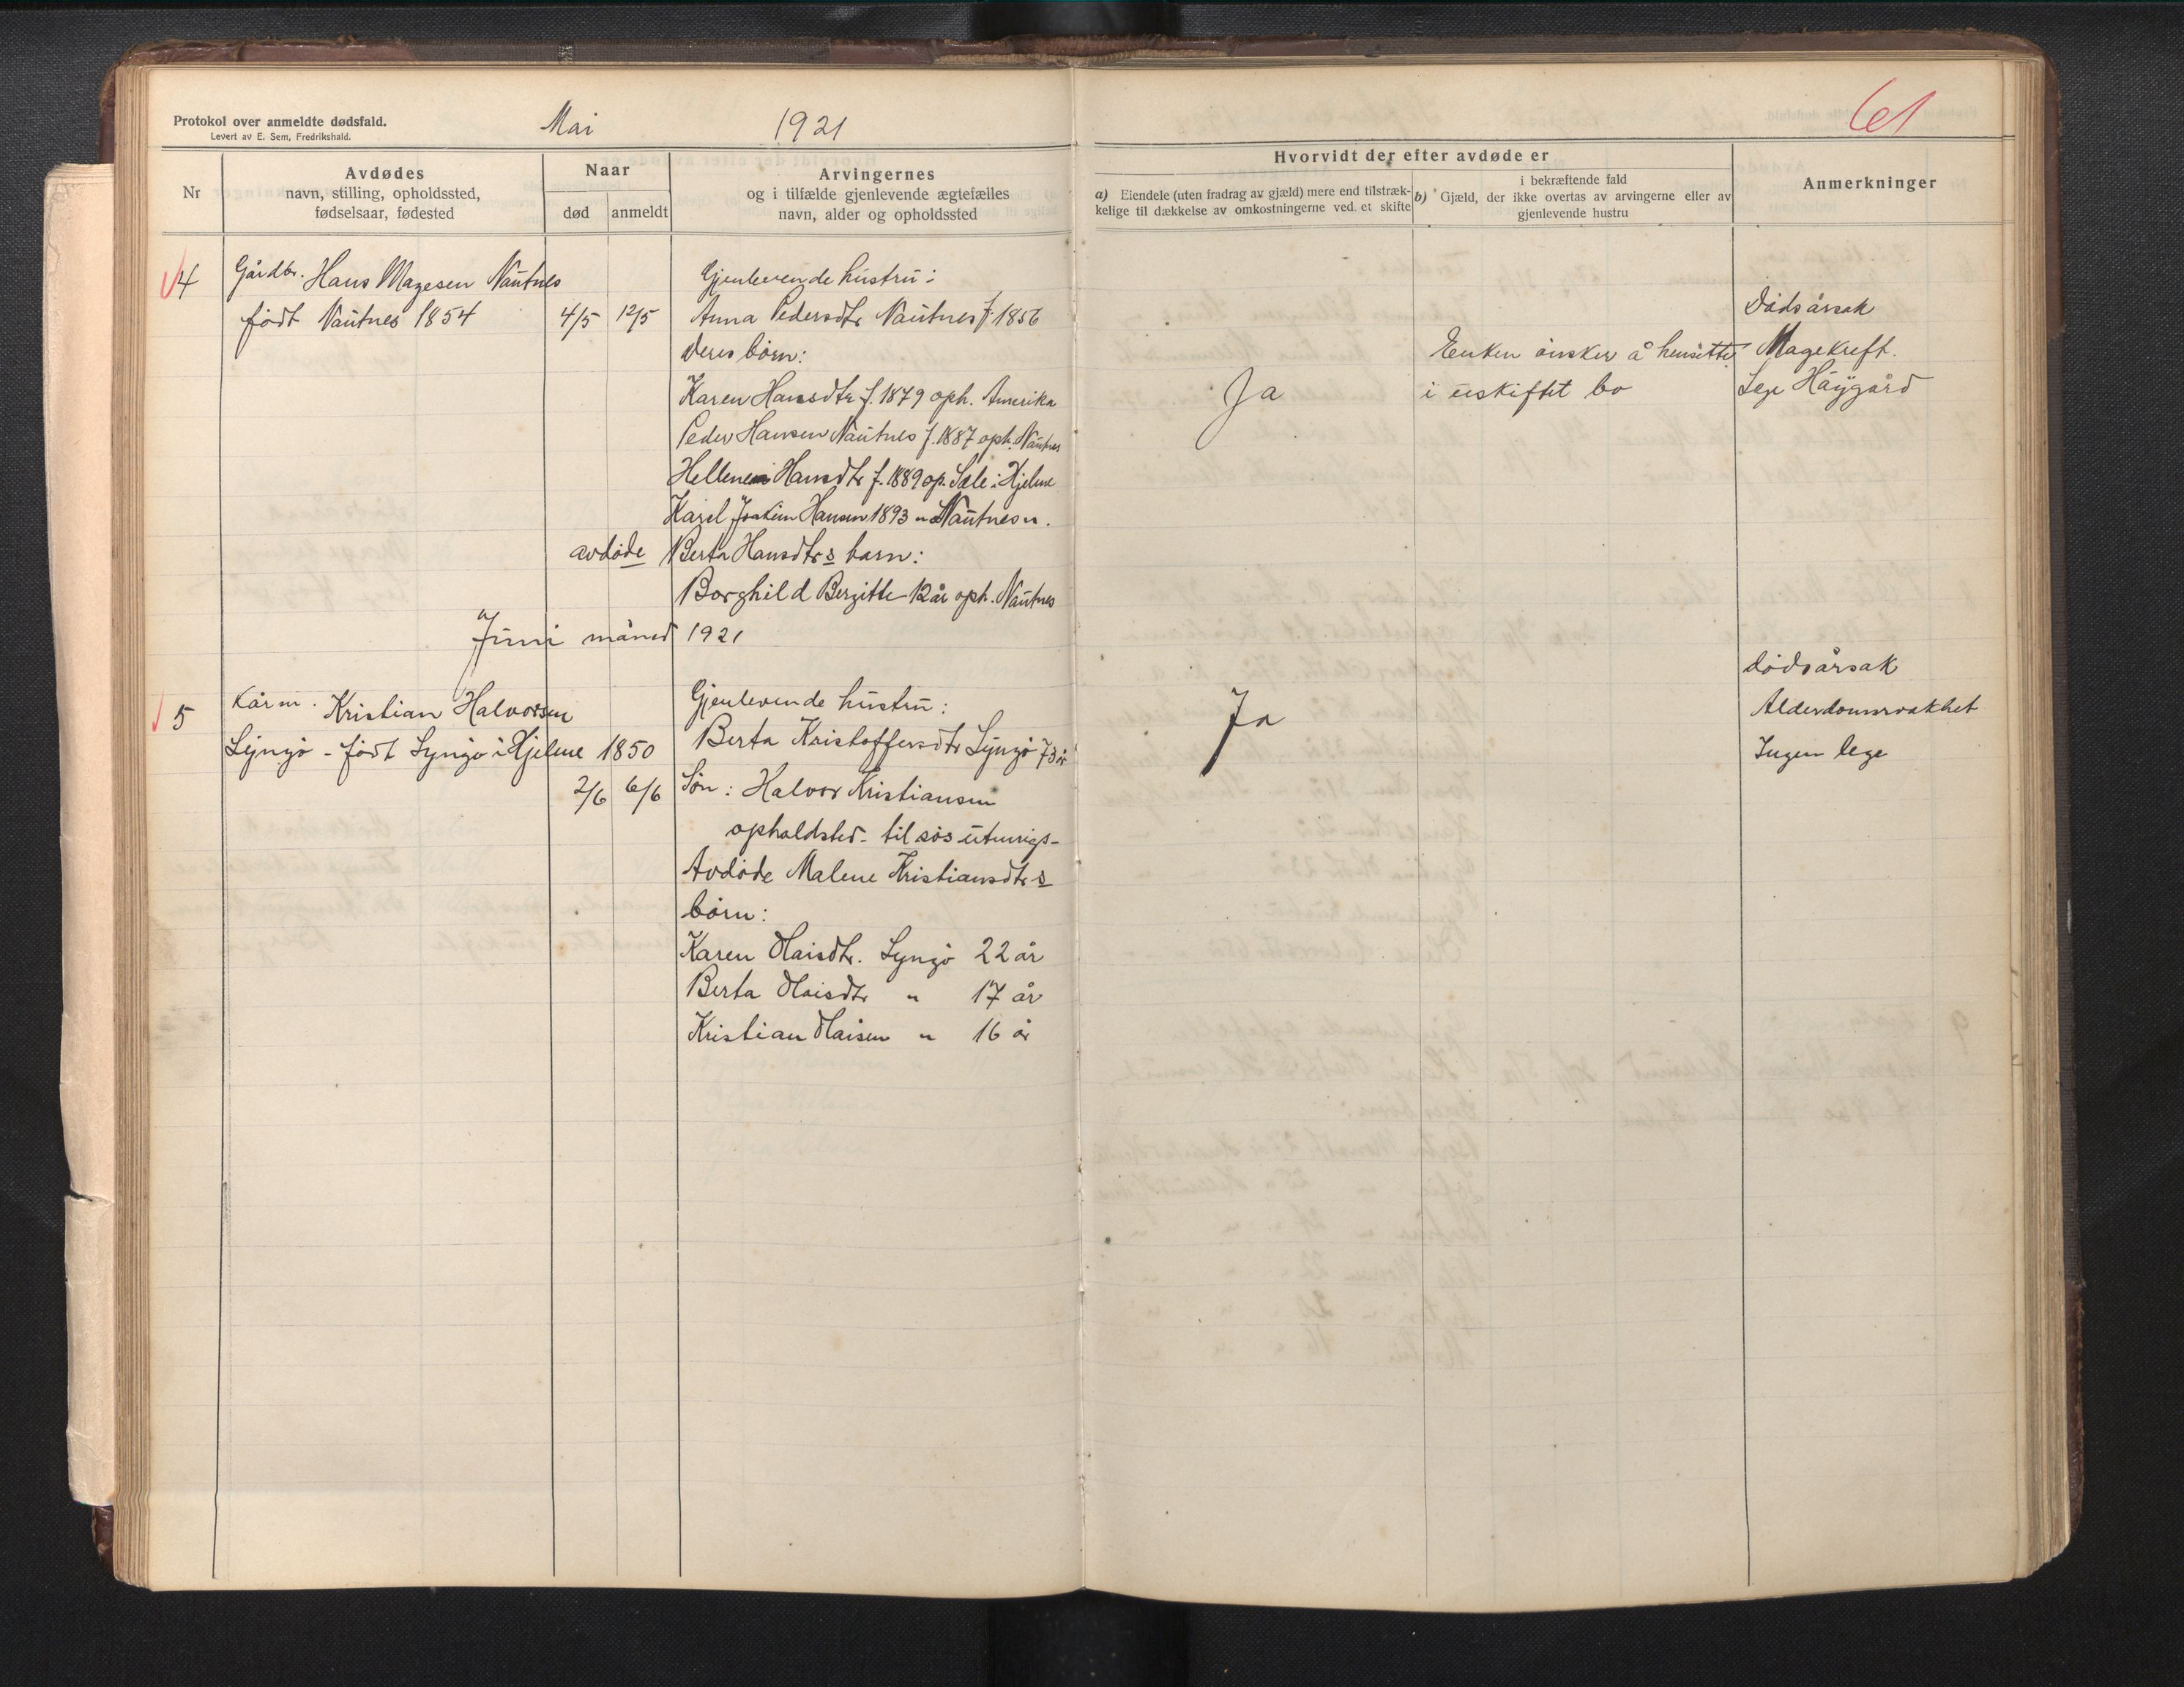 Protokol over anmeldte dødsfald.
Levert av E. Sem, Fredrikshald.
Mai 1921
61
Nr
Avdødes
navn, stilling, opholdssted,
fødselsaar, fødested
Naar
død anmeldt
Arvingernes
og i tilfælde gjenlevende ægtefælles
navn, alder og opholdssted
Hvorvidt der efter avdøde er
a) Eiendele (uten fradrag av gjæld) mere end tilstræk-
kelige til dækkelse av omkostningerne ved. et skifte
i bekræftende fald
b) Gjæld, der ikke overtas av arvingerne eller av
gjenlevende hustru
Anmerkninger
4 Gårdbr. Hans Magesen Nautnes
født Nautnes 1854 4/5 12/5
Gjenlevende hustru:
Anna Pedersdtr Nautnes f. 1856
deres børn:
Karen Hansdtr f. 1879 oph. Amerika
Peder Hansen Nautnes f. 1887 oph. Nautnes
Hellene Hansdtr f. 1889 op. Sæle i Hjelme
Karl Joakim Hansen 1893 " Nautnes ".
avdøde Berta Hansdtrs barn:
Borghild Bergitte 12 år oph. Nautnes
Ja
Enken ønsker å hensitte
i uskiftet bo
Dødsårsak
Magekreft.
Lege Høygård
Juni måned 1921
5 Kårm. Kristian Halvorsen
Lyngø - født Lyngø i Hjelme 1850
2/6 6/6
Gjenlevende hustru:
Berta Kristoffersdtr Lyngø 73 år
Søn: Halvor Kristiansen
opholdsted - til søs utenrigs -
Avdøde Malene Kristiansdtrs
børn:
Karen Olaisdtr. Lyngø 22 år
Berta Olaisdtr " 17 år
Kristian Olaisen " 16 år
Ja
dødsårsak
Alderdomssvakhet
Ingen lege